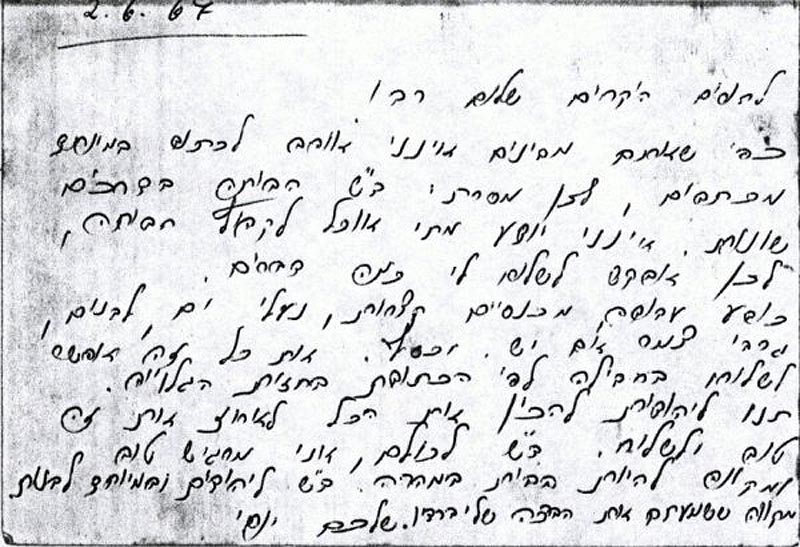 2.6.67
להורים היקרים שלום רב!
כפי שאתם מבינים אינני אוהב לכתוב במיוחד
מכתבים, לכן מסרתי ד"ש הביתה בדרכים
שונות. אינני יודע מתי אוכל לקפוץ הביתה,
לכן אבקש לשלוח לי כמה דברים.
כובע עבודה מכנסיים קצרות, נעלי ים, לבנים,
וגרבי צמר אם יש. וכסף. את כל זה אפשר
לשלוח בחבילה לפי הכתובת בחזית הגלויה.
תנו ליהודית להכין את הכל לארוז את זה
טוב ולשלוח. ד"ש לכולם, אני מרגיש טוב
ומקווה להיות בבית במהרה. ד"ש ליהודים ובמיוחד לבנות
מקווה ששמעתם את הבדיחה שלי ברדיו. שלכם יוסי